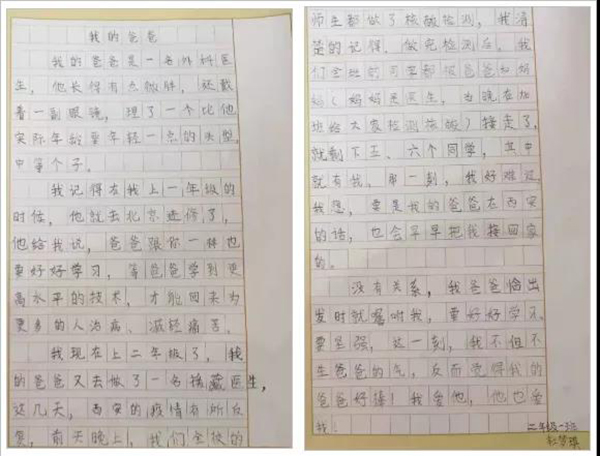 我的爸爸
我的爸爸是一名外科医
生，他长得有点微胖，还戴
着一副眼镜，理了一个比他
实际年龄要年轻一点的头型，
中等个子。
我记得在我上一年级的
时候，他就去北京进修了，
他给我说，爸爸跟你一样也
要好好学习，等爸爸学到更
高水平的技术，才能回来为
更多的人治病、减轻痛苦。
我现在上二年级了，我
的爸爸又去做了一名援藏医生，
这几天，西安的疫情有所反
复，前天晚上，我们全校的
师生都做了核酸检测，我清
楚的记得，做完检测后，我
们全班的同学都被爸爸和妈
妈（妈妈是医生，当晚在
给大家检测核酸）接走了，
就剩下五、六个同学，其中
就有我，那一刻，我好难过，
我想，要是我的爸爸在西安
的话，也会早早把我接回家
的。
没有关系，我爸爸临出
发时就嘱咐我，要好好学习，
要坚强，这一刻，我不但不
生爸爸的气，反而觉得我的
爸爸好棒！我爱他，他也爱
我！
二年级一班